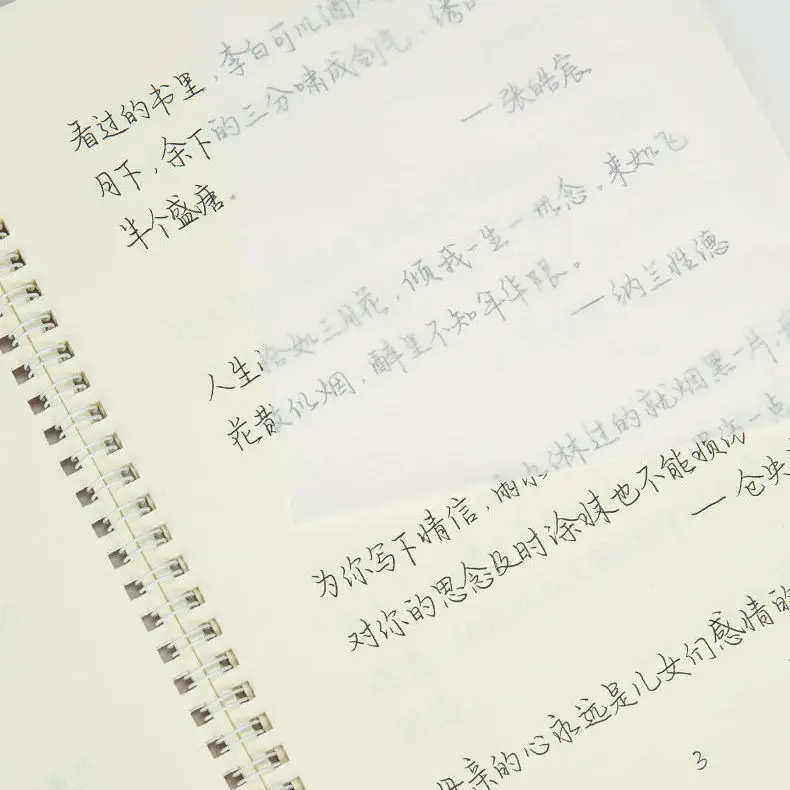 看过的书里,李白可以酒入
月下,余下的三分啸成剑气,绣口
半个盛唐。
— 张皓宸
人生恰如三月花,倾我一生一世念。来如飞
花散似烟,醉里不知年华限。
— 纳兰性德
为你写下情信,雨水淋过的就烟黑一片,
对你的思念及时涂抹也不能损伤一点
— 仓央
母亲的心永远是儿女们感情的
3